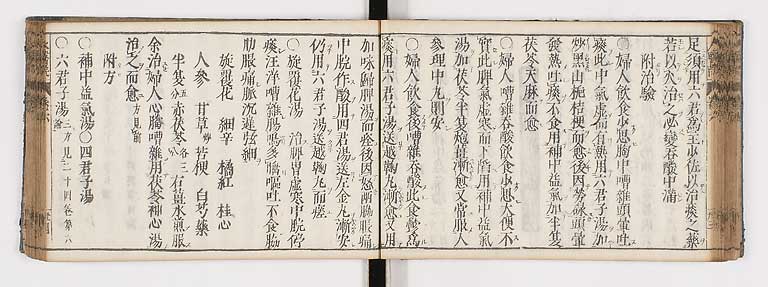 足須用六君為主少佐以治痰之藥
若以火治之必變吞酸中滿
附治驗
○婦人飲食少思胸中嘈雜頭暈吐
痰此中氣虛而有熱用六君子湯加
炒黑山梔桔梗而愈後因勞碌頭暈
發熱吐痰不食用補中益氣加半夏
茯苓天麻而愈
○婦人嘈雜吞酸飲食少思大便不
實此脾氣虛寒而下陷用補中益氣
湯加茯苓半夏炮薑漸愈又常服人
參理中丸則安
○婦人飲食後嘈雜吞酸此食鬱為
痰用六君子湯送越鞠丸漸愈又用
加味歸脾湯而痊後因怒兩脇脹痛
中脘作酸用四君湯送左金丸漸安
仍用六君子湯送越鞠丸而瘥
○旋覆花湯 治脾胃虛寒中脘停
痰汪洋嘈雜腸鳴多唾嘔吐不食脇
肋脹痛脈沉遲弦細
旋覆花 細辛 橘紅 桂心
人參 甘草 桔梗 白芍藥
半夏 赤茯苓 右薑水煎服
余治婦人心胸嘈雜用茯苓補心湯
治之而愈
附方
○補中益氣湯○四君子湯
○六君子湯 三方見二十四卷第六